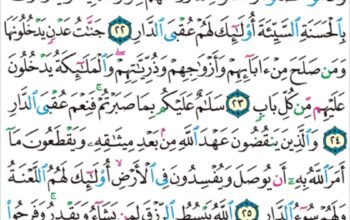 بِالْحَسَنَةِ السَّيِّئَةَ أُوْلَٰٓئِكَ لَهُمْ عُقْبَى الدَّارِ ٢٢ جَنَّٰتُ عَدْنٍ يَدْخُلُونَهَا
وَمَن صَلَحَ مِنْ ءَابَآئِهِمْ وَأَزْوَٰجِهِمْ وَذُرِّيَّٰتِهِمْ وَالْمَلَٰٓئِكَةُ يَدْخُلُونَ
عَلَيْهِم مِّن كُلِّ بَابٍ ٢٣ سَلَٰمٌ عَلَيْكُم بِمَا صَبَرْتُمْ فَنِعْمَ عُقْبَى الدَّارِ
٢٤ وَالَّذِينَ يَنقُضُونَ عَهْدَ اللَّهِ مِنۢ بَعْدِ مِيثَٰقِهِۦ وَيَقْطَعُونَ مَآ
أَمَرَ اللَّهُ بِهِۦٓ أَن يُوصَلَ وَيُفْسِدُونَ فِي الْأَرْضِ أُوْلَٰٓئِكَ لَهُمُ اللَّعْنَةُ
وَلَهُمْ سُوٓءُ الدَّارِ ٢٥ اللَّهُ يَبْسُطُ الرِّزْقَ لِمَن يَشَآءُ وَيَقْدِرُ وَفَرِحُوا